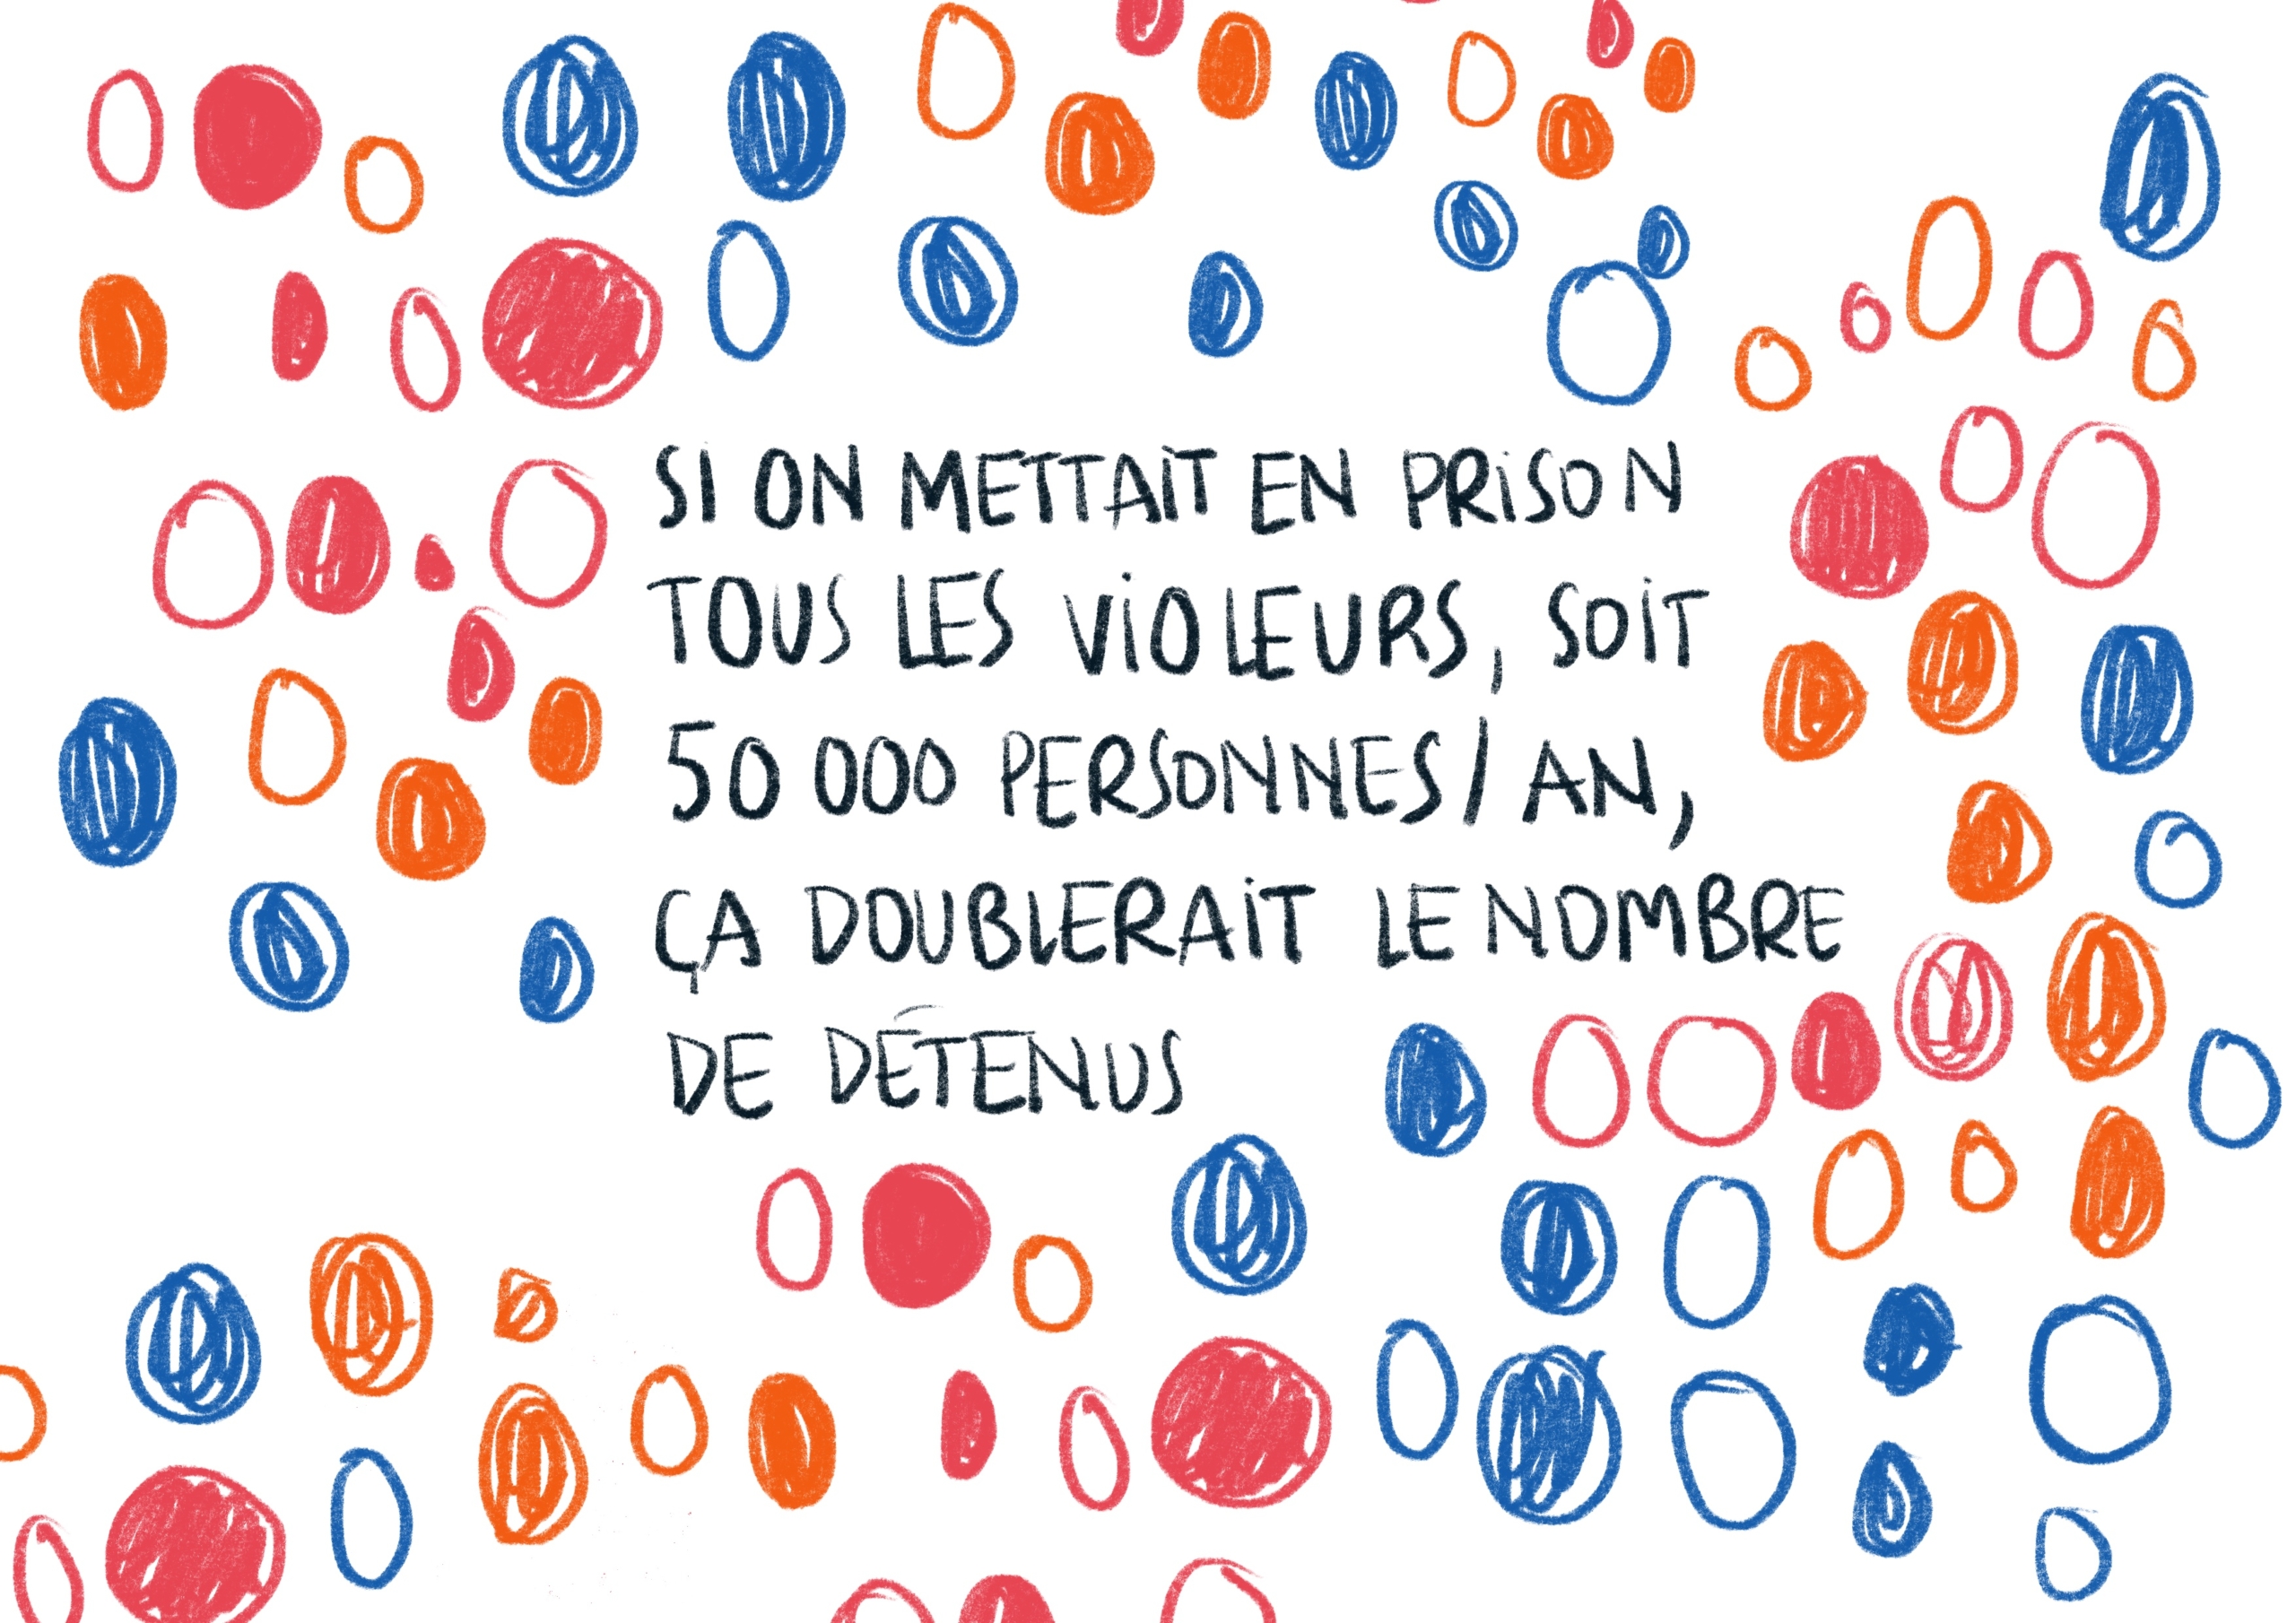 SI ON METTAIT EN PRISON
TOUS LES VIOLEURS, SOIT
50 000 PERSONNES / AN,
ÇA DOUBLERAIT LE NOMBRE
DE DÉTENUS